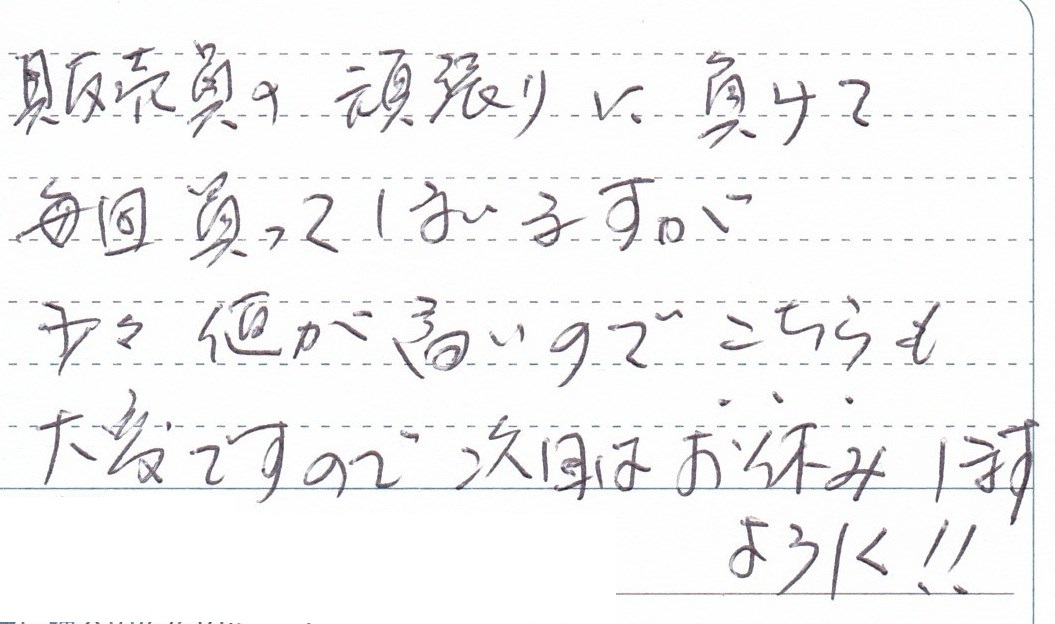 販売員の頑張りに負けて
毎回買ってしまいますが
少々値が高いのでこちらも
大変ですので次回はお休みします
よろしく!!